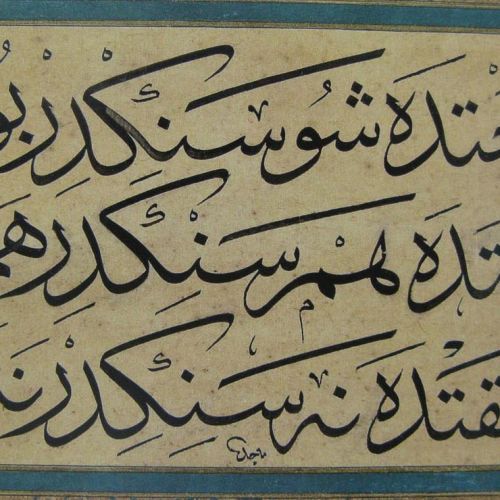 ـتدَه شُو سَنِڭدِرْ بُو
ـتدَه هَمْ سَنِڭدِرْ هَمْ
ـقتدَه نَه سَنِڭدِرْ نَه
ماجد